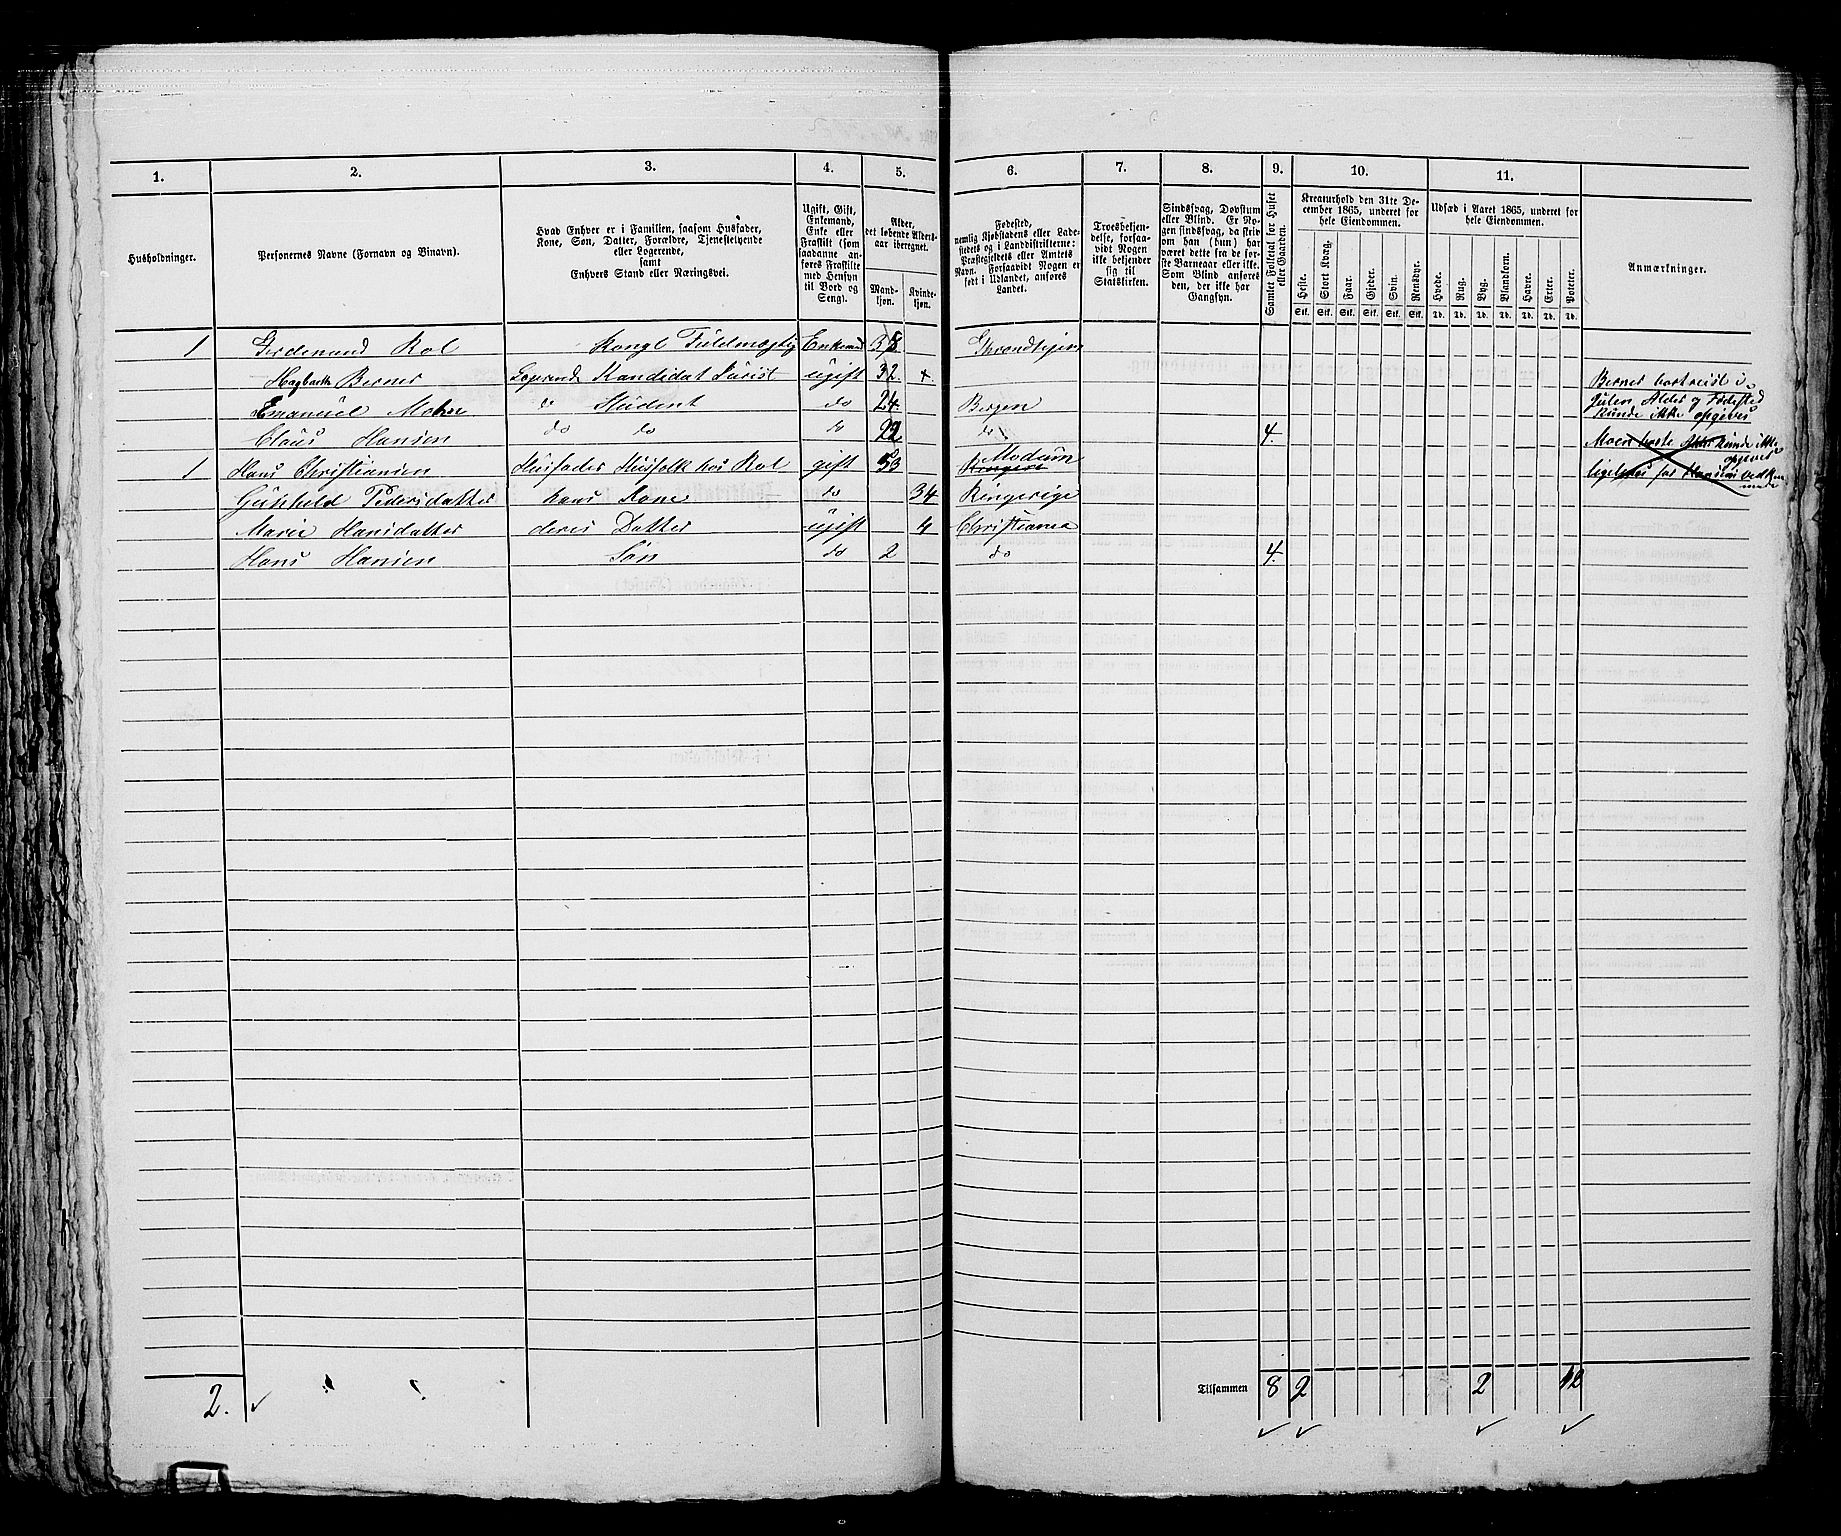 1. 2. 3. 4. 5. 6. 7. 8. 9. 10. 11.
Husholdninger.
Personernes Navne (Fornavn og Binavn).
Hvad Enhver er i Familien, saasom Husfader,
Kone, Søn, Datter, Forældre, Tjenestetyende
eller Logerende,
samt
Enhvers Stand eller Næringsvei.
Ugift, Gift,
Enkemand,
Enke eller
Fraskilt (som
saadanne an-
føres Fraskilte
med Hensyn
til Bord og
Seng).
Alder,
det løbende Alders-
aar iberegnet.
Mand-
kjøn.
Kvinde-
kjøn.
Fødested,
nemlig Kjøbstadens eller Lade-
stedets og i Landdistrikterne:
Præstegjeldets eller Amtets
Navn. Forsaavidt Nogen er
født i Udlandet, anføres
Landet.
Troesbekjen-
delse, forsaa-
vidt Nogen
ikke bekjender
sig til
Statskirken.
Sindssvag, Døvstum
eller Blind. Er No-
gen sindssvag, da skriv
om han (hun) har
været dette fra de før-
ste Barneaar eller ikke.
Som Blind anføres
den, der ikke har
Gangsyn.
Samlet Folketal for Huset
eller Gaarden.
Kreaturhold den 31te De-
cember 1865, underet for
hele Eiendommen.
Heste. Stort Kvæg. Faar. Gjeder. Svin. Rensdyr.
Stk. Stk. Stk. Stk. Stk. Stk.
Udsæd i Aaret 1865, underet for
hele Eiendommen.
Hvede. Rug. Byg. Blandkorn. Havre. Erter. Poteter.
Td. Td. Td. Td. Td. Td. Td.
Anmærkninger.
1 Ferdenand Rol Kongl Fuldmægtig Enkem 38 Throndhjem
Hagbarth Berner Logerende Kandidat Jurist ugift 32. +.
Emanuel Mohn do Student do 24. Bergen
Claus Hansen do do do 22 do 4.
1 Hans Christiansen Husfader Husfolk hos Rol gift 53 Ringeri Modum
Gunhild Pedersdatter hans Kone do 34 Ringerige
Marie Hansdatter deres Datter ugift 4 Christiania
Hans Hansen Søn do 2 do 4.
Berner bortreist i
Julen, Alder og Fødested
kunde ikke opgives
Moen Alder kunde ikke
opgives
ligeledes for Hansens
2. Tilsammen 8 2 2 12